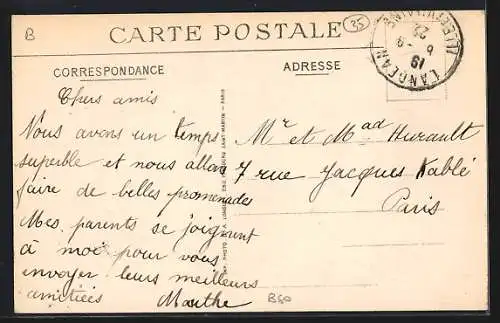 B
CARTE POSTALE
35
CORRESPONDANCE
ADRESSE
LANGEAN
ILLE ET VILAINE
19
6 - 9
22
Chers amis
Nous avons un temps
superble et nous allons
faire de belles promenades
Mes parents se joignent
à moi pour vous
envoyer leurs meilleurs
amitiées Mauthe
Mr et Mad Hurault
7 rue Jacques Kablé
Paris
B50